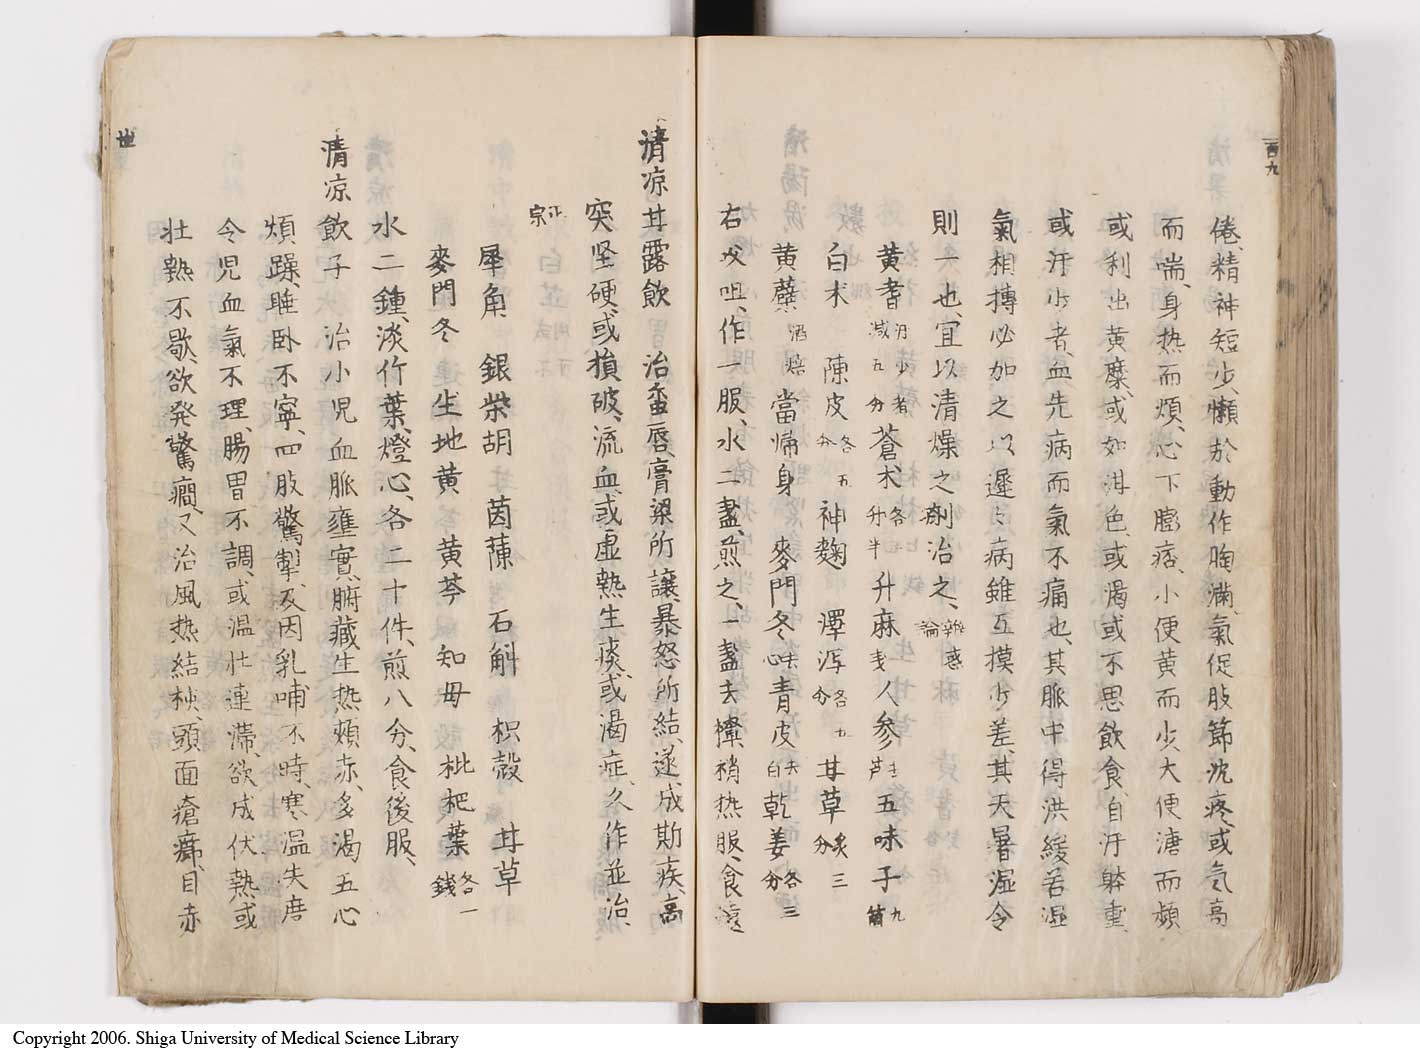 百九
倦、精神短少、懶於動作、胸滿、氣促、肢節沈疼、或氣高
而喘、身热而煩、心下膨痞、小便黄而少、大便溏而頻、
或利出黄糜、或如泔色、或渴、或不思飲食、自汗、躰重、
或汗少者、血先病而氣不痛也、其脈中得洪緩、若湿
氣相搏必加之以遲〻病雖互摸少差、其天暑湿令
則一也、宜以清燥之劑治之、辨惑論
黄耆汗少者减五分 蒼朮各分半 升麻 人参去芦 五味子九箇
白朮 陳皮各五分 神麴 澤泻各五分 甘草炙三分
黄蘗酒焙 當帰身 麥門冬 青皮去白 乾姜各三分
右㕮咀、作一服、水二盞、煎之、一盞去滓、稍热服、食遠、
清凉甘露飲 治蚕唇、膏梁所讓、暴怒所結、遂成斯疾、高
突坚硬、或損破、流血、或虚熱生痰、或渴症、久作並治、
正宗
犀角 銀柴胡 茵蔯 石斛 枳殻 甘草
麥門冬 生地黄 黄芩 知母 枇杷葉各一錢
水二鍾、淡竹葉、燈心、各二十件、煎八分、食後服、
清凉飲子 治小児血脈壅實、腑藏生热、頰赤、多渴、五心
煩躁、睡卧不寧、四肢驚掣、及因乳哺不時、寒温失度、
令児血氣不理、腸胃不調、或温壮連滞、欲成伏熱、或
壮熱不歇、欲発驚癇、又治風热結核、頭面瘡癤、目赤
世
Copyright 2006. Shiga University of Medical Science Library